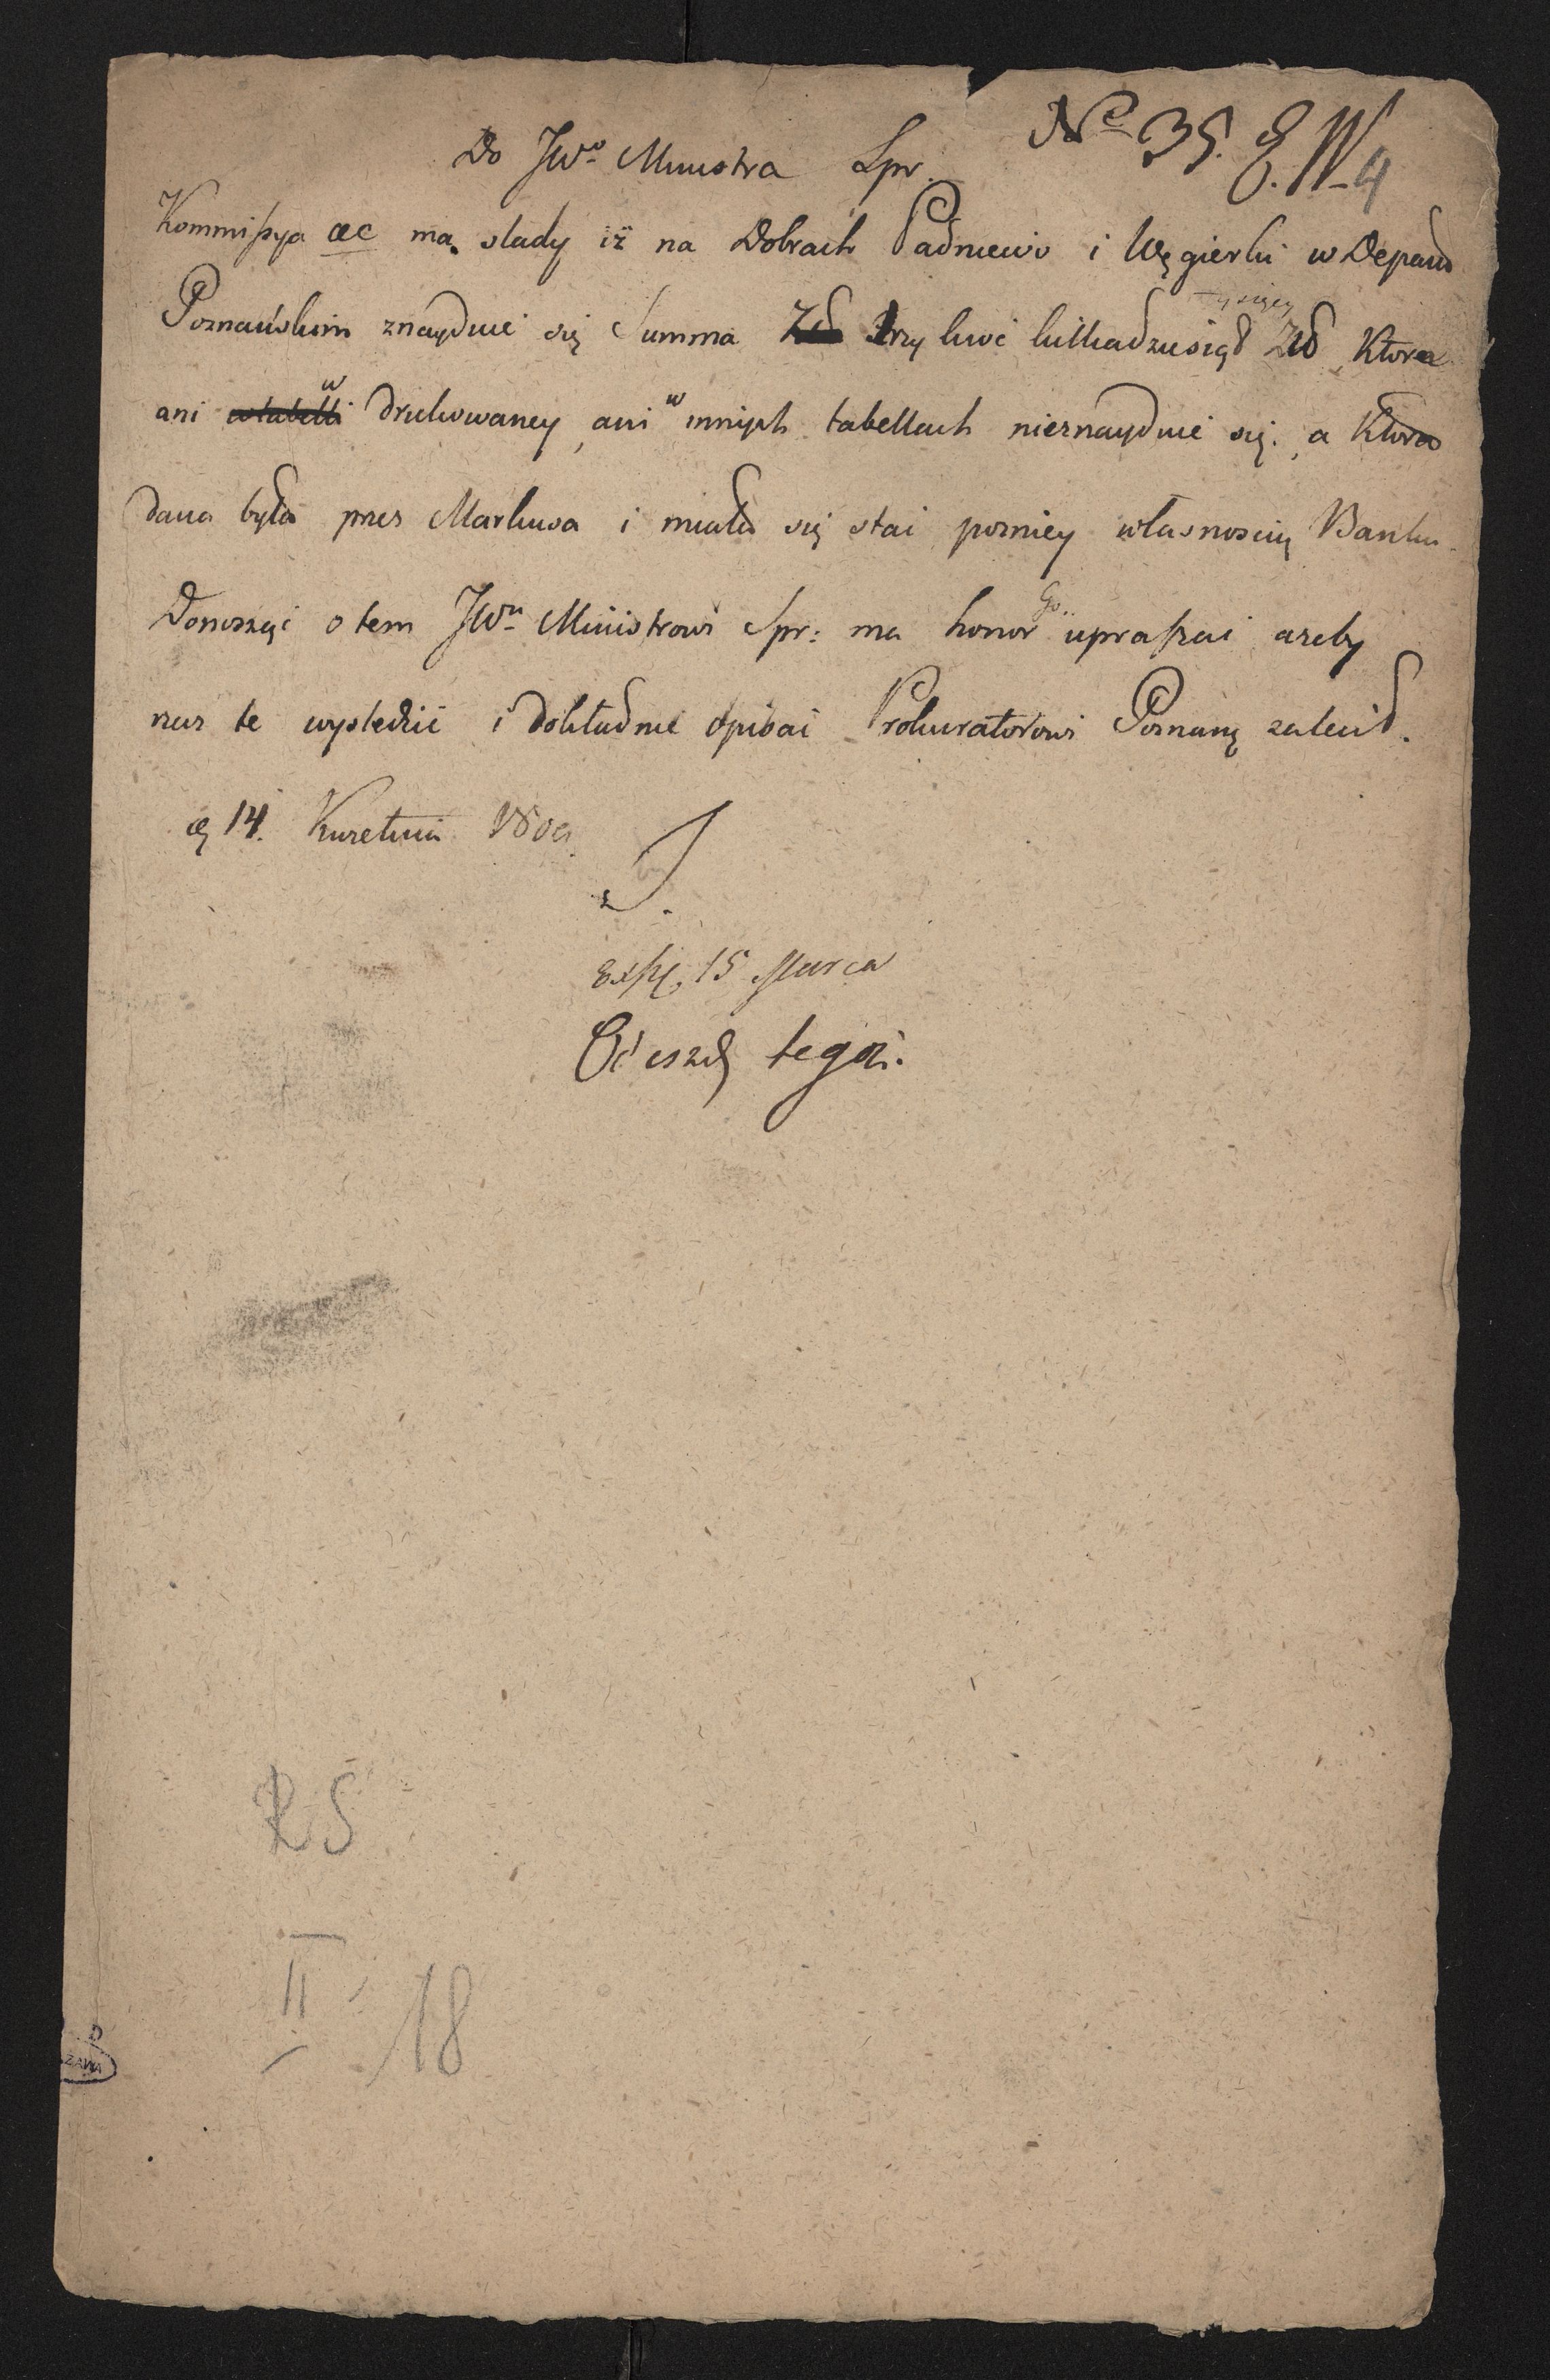 Nº 35. E. W. 4
Do JWº Ministra Spr.
Kommissya etc ma slady iż na Dobrach Padniewo i Węgierki w Depart
Poznańskim znayduie się Summa trzykroć kilkadziesiąt tysięcy Zł która
ani w drukowaney, ani w innych tabellach nieznayduie się, a która
dana była przez Markusa i miała się stać pozniey własnoscią Banku
Donosząc o tem JWu Ministrowi Spr: ma honor Go upraszać ażeby
rzecz te wysledzić i dokładnie opisać Prokuratorowi Poznans zalecił.
14. Kwietnia 1809
Exp. 15 Marca
Odeszła tegoż.
RS
II 18